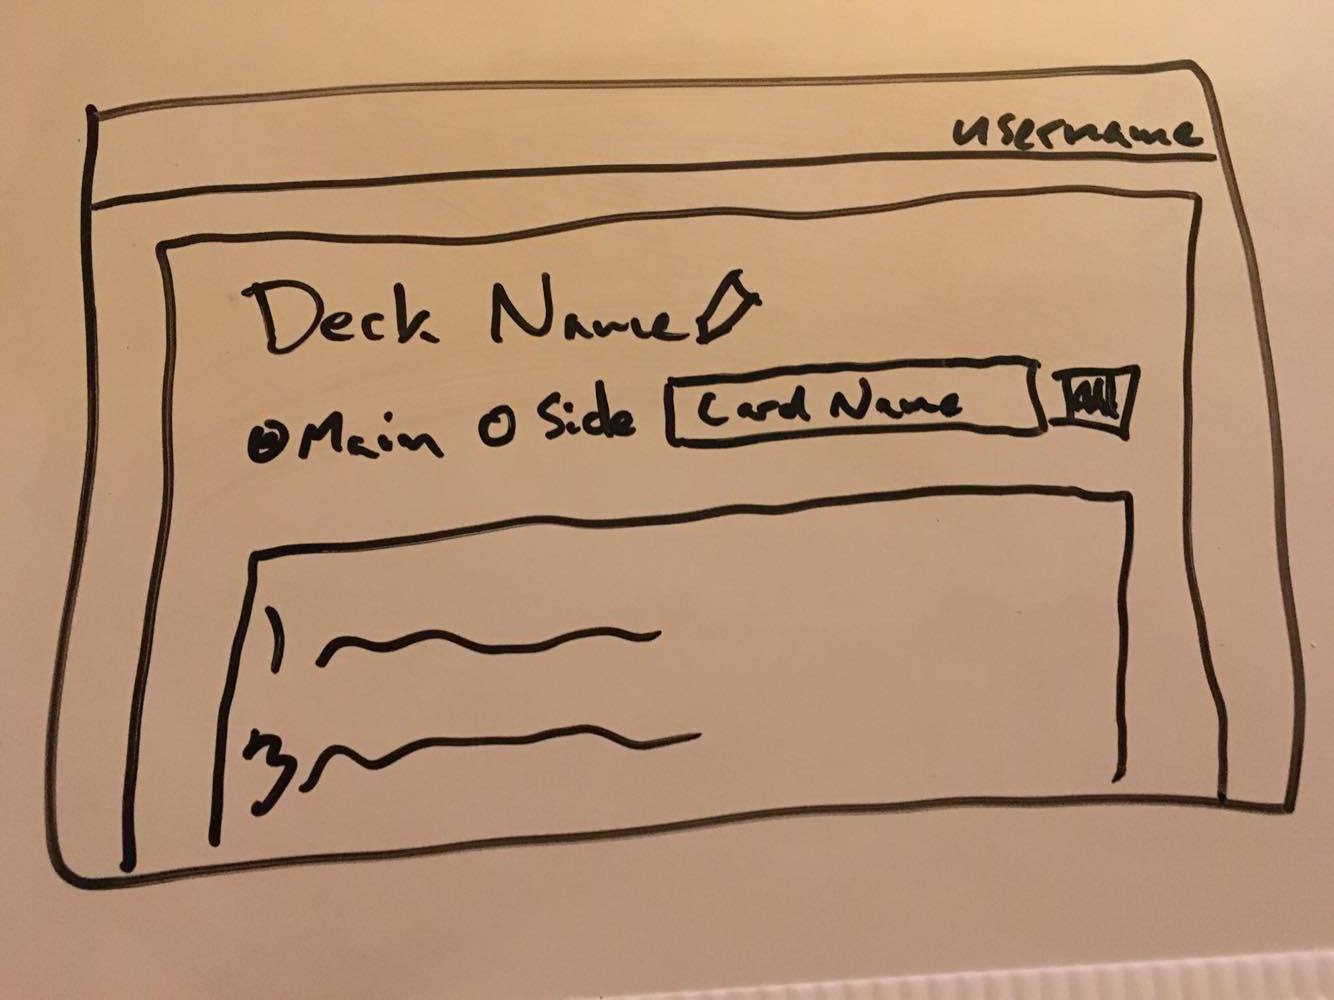 username
Deck Name
Main Side Card Name
1
3